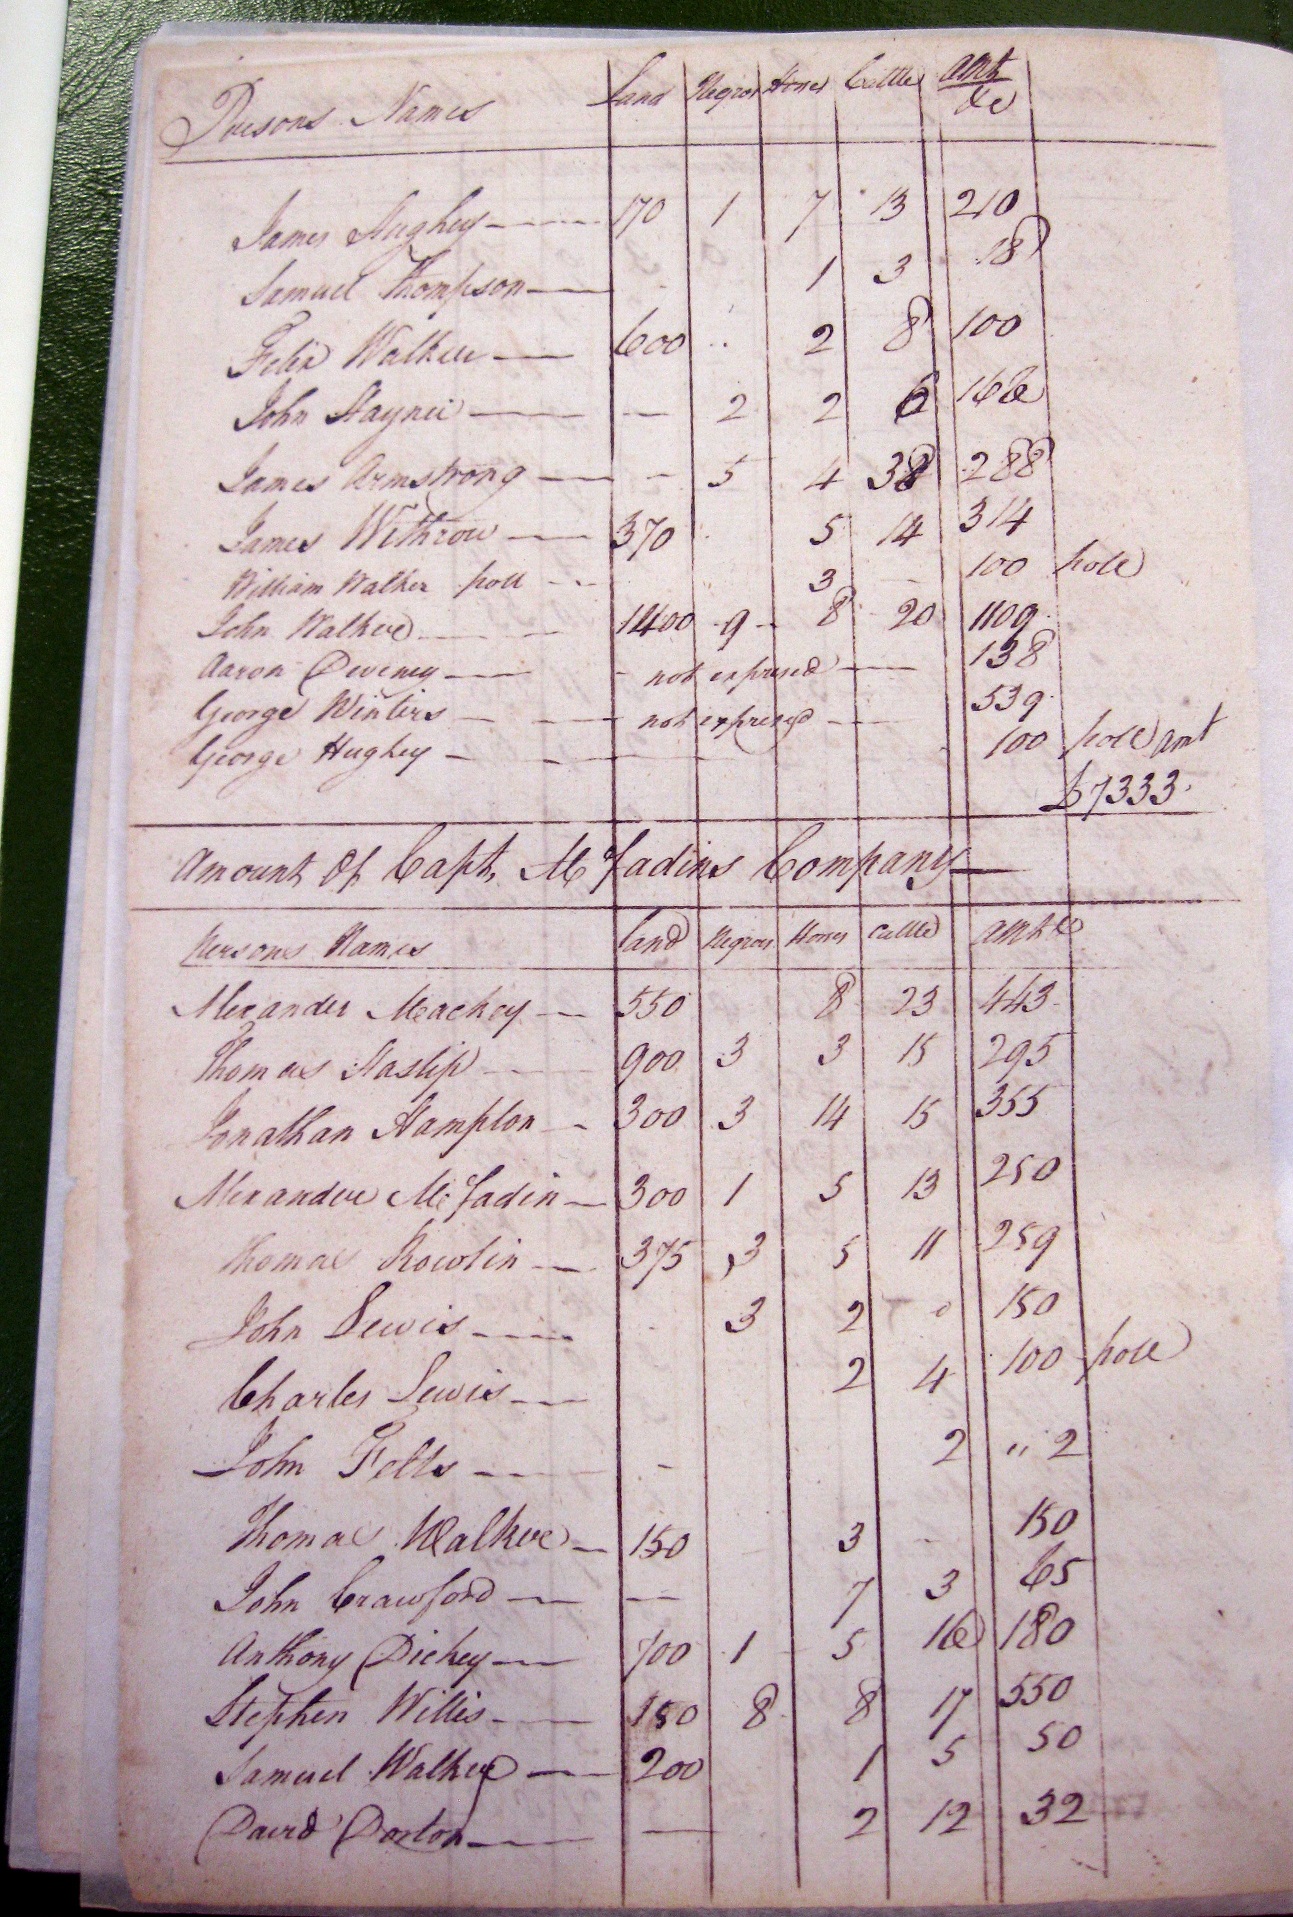 Persons Names Land Negroes Horses Cattle Amt &c
James Hughey 170 1 7 13 210
Samuel Thompson 1 3 18
Felix Walker 600 2 8 100
John Haynes — 2 2 6 166
James Armstrong — 5 4 38 288
James Withrow 370 5 14 314
William Walker poll 3 — 100 poll
John Walker 1400 9 8 20 1109
Aaron Deveney not expresed 138
George Winters not expresed 539
George Hughey 100 poll amt
£7333
Amount Of Capt. McFadins Company
Persons Names Land Negroes Horses Cattle Amt &c
Alexander Mackey 550 8 23 443
Thomas Haslip 900 3 3 15 295
Jonathan Hampton 300 3 14 15 355
Alexander McFadin 300 1 5 13 250
Thomas Rowlin 375 3 5 11 259
John Lewis 3 2 0 150
Charles Lewis 2 4 100 poll
John Felts - 2 " 2
Thomas Walker 150 3 - 150
John Crawford — 7 3 65
Anthony Dickey 700 1 5 16 180
Stephen Willis 150 8 8 17 550
Samuel Walker 200 1 5 50
David Dorton — 2 12 32